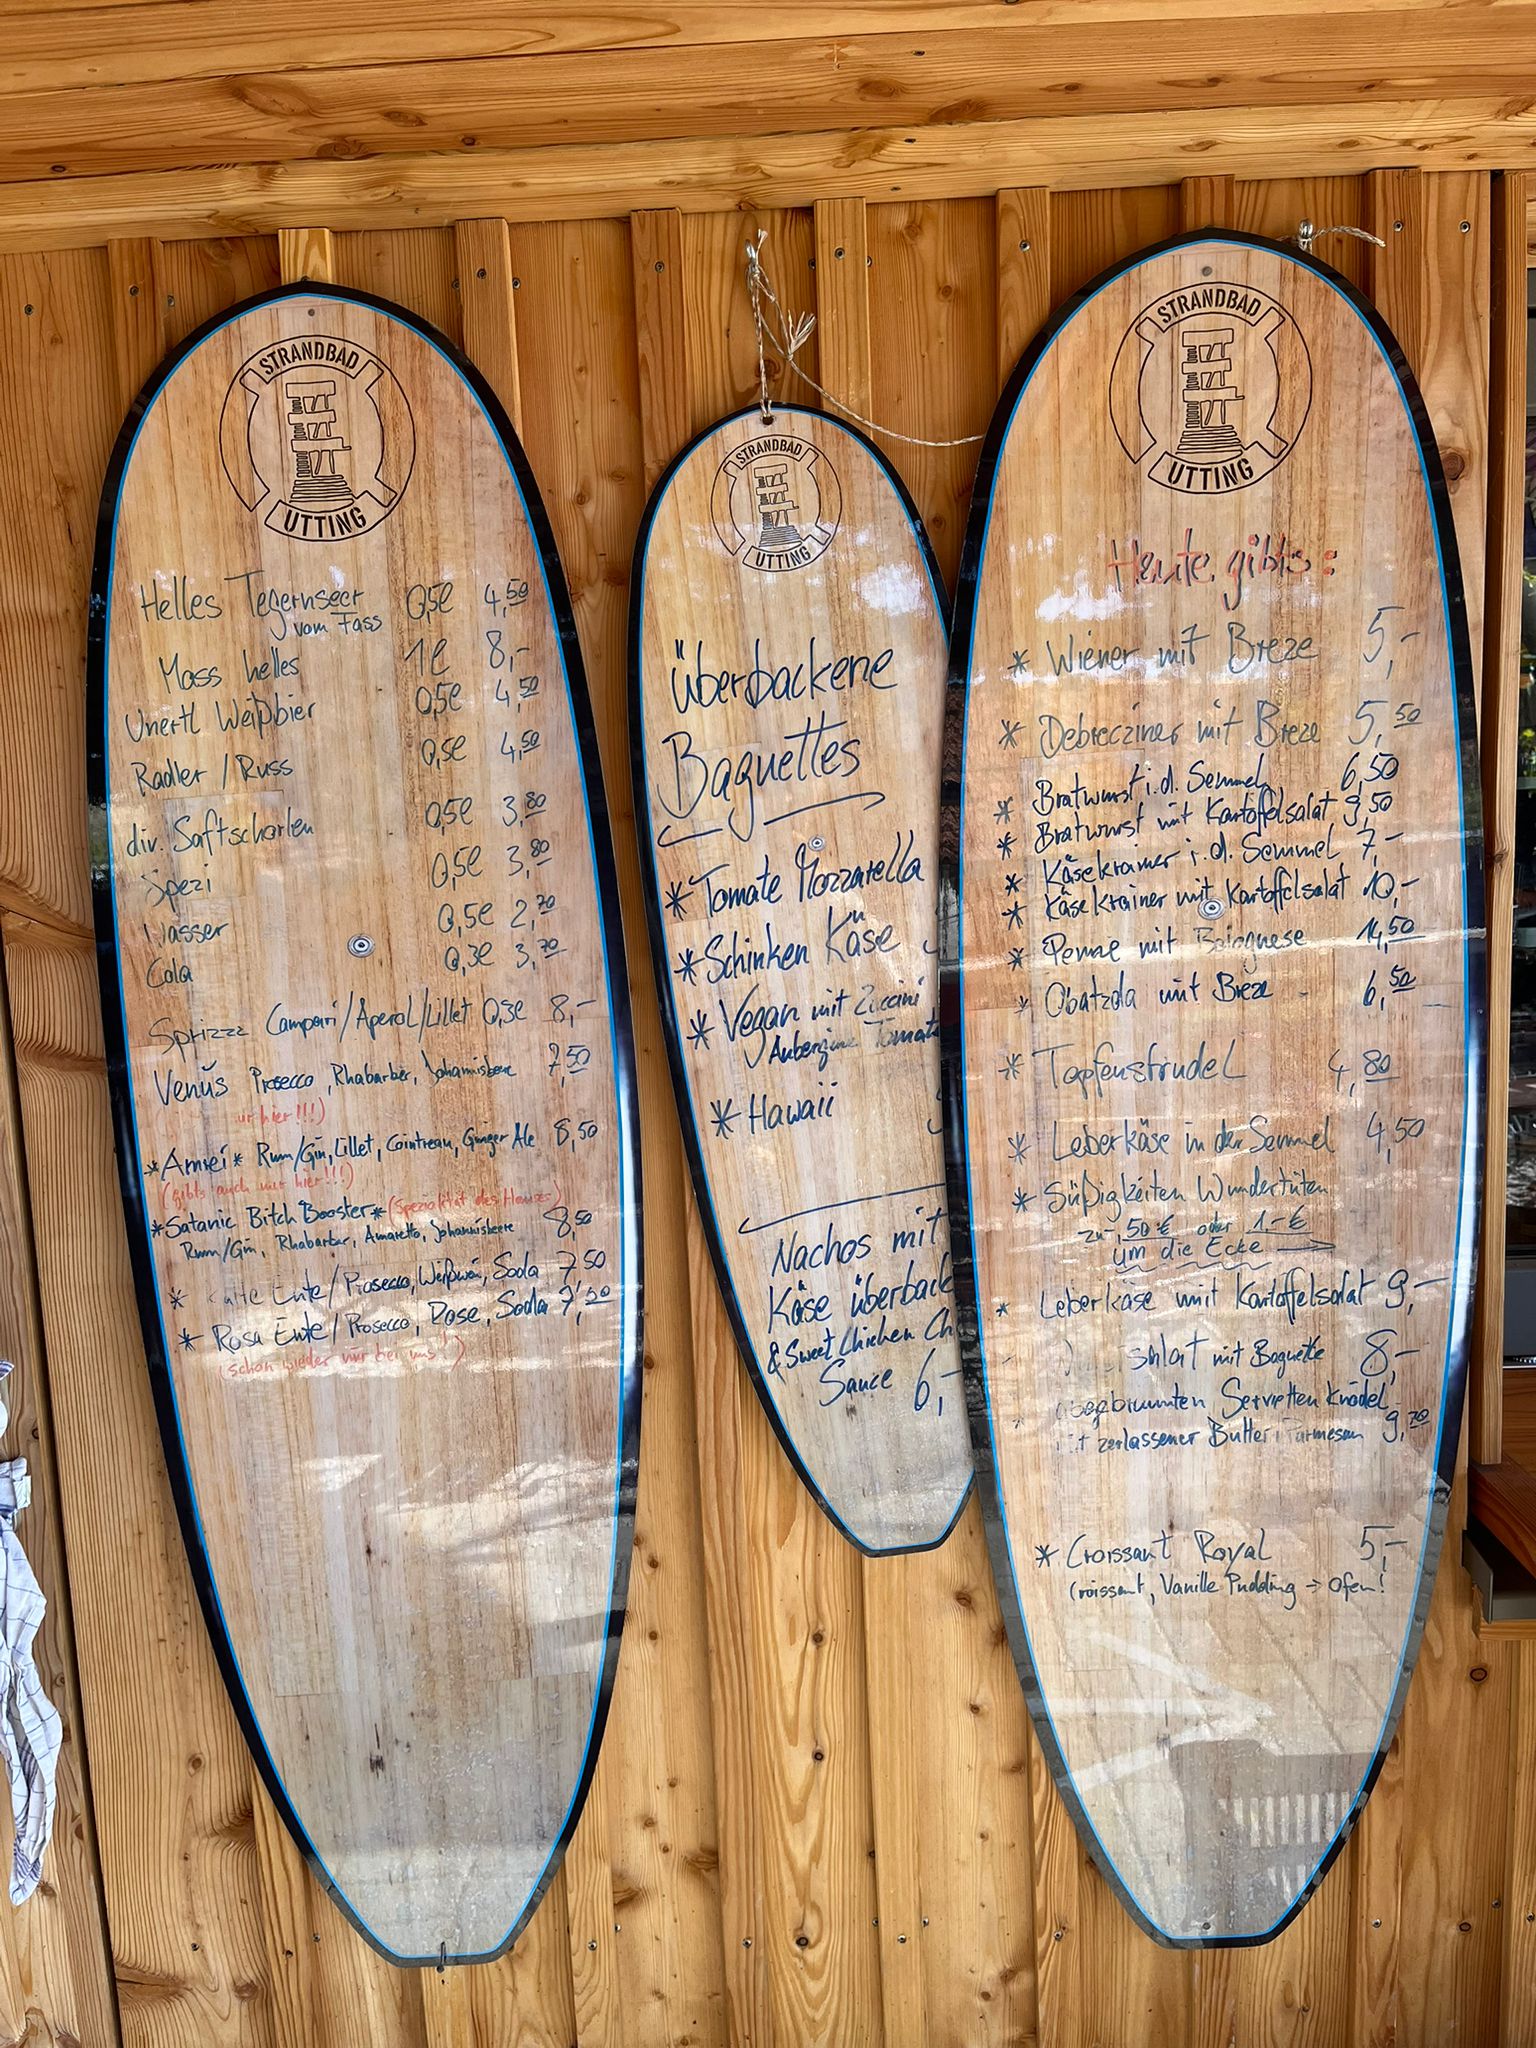 STRANDBAD
UTTING
Helles Tegernseer 0,5l 4,50
vom Fass
Mass helles 1l 8,-
Unertl Weißbier 0,5l 4,50
Radler / Russ 0,5l 4,50
div. Saftschorlen 0,5l 3,80
Spezi 0,5l 3,80
Wasser 0,5l 2,70
Cola 0,3l 3,70
Sprizzz Campari/Aperol/Lillet 0,3l 8,-
Venus Prosecco, Rhabarber, Johannisbeere 7,50
ur hier!!!)
*Amrei* Rum/Gin, Lillet, Cointreau, Ginger Ale 8,50
(gibts auch nur hier!!!)
*Satanic Bitch Booster* (Spezialität des Hauses)
Rum/Gin, Rhabarber, Amaretto, Johannisbeere 8,50
* Ente/Prosecco, Weißwein, Soda 7,50
* Rosa Ente/Prosecco, Rose, Soda
(schon wieder nur bei uns!)
STRANDBAD
UTTING
Überbackene
Baguettes
* Tomate Mozzarella
* Schinken Käse
* Vegan mit Zuccini
Aubergine Tomate
* Hawaii
Nachos mit
Käse überback
& Sweet Chicken Ch
Sauce 6,-
STRANDBAD
UTTING
Heute gibts:
* Wiener mit Breze 5,-
* Debrecziner mit Breze 5,50
* Bratwurst i.d. Semmel 6,50
* Bratwurst mit Kartoffelsalat 9,50
* Käsekrainer i.d. Semmel 7,-
* Käsekrainer mit Kartoffelsalat 10,-
* Penne mit Bolognese
* Obatzda mit Breze 6,50
* Topfenstrudel 4,80
* Leberkäse in der Semmel 4,50
* Süßigkeiten Wundertüten
zu -,50€ oder 1-€
um die Ecke →
* Leberkäse mit Kartoffelsalat 9,-
mit Baguette 8,-
Servietten Knödel
zerlassener Butter Parmesan 9,70
* Croissant Royal 5,-
Croissant, Vanille Pudding → Ofen!